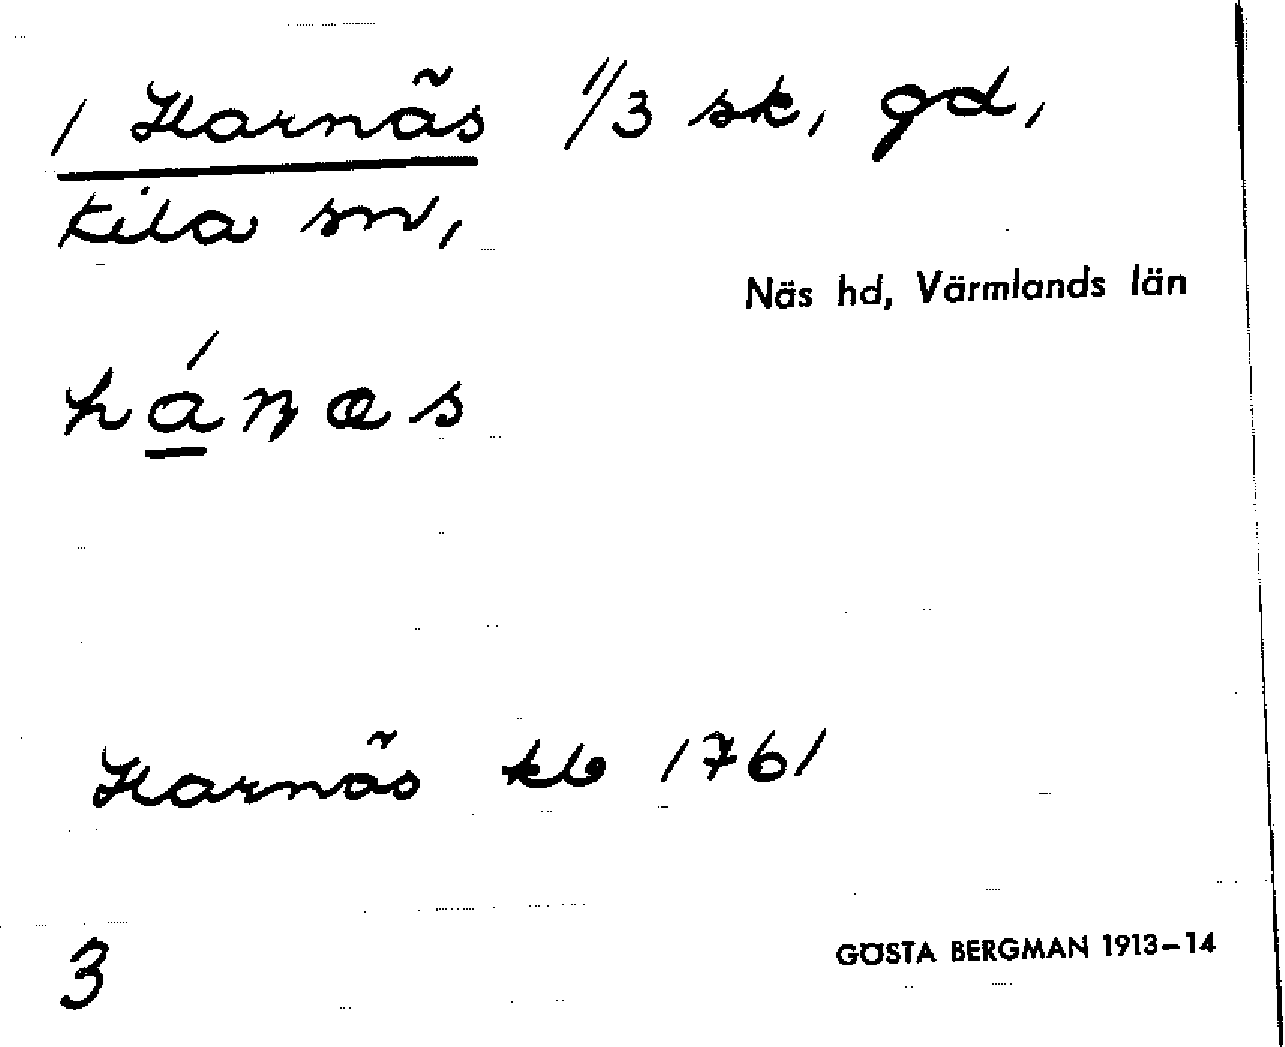 1 Harnäs 1/3 sk, gd,
Kila sn,
Näs hd, Värmlands län
hánæs
Harnäs kb 1761
3
GÖSTA BERGMAN 1913–14